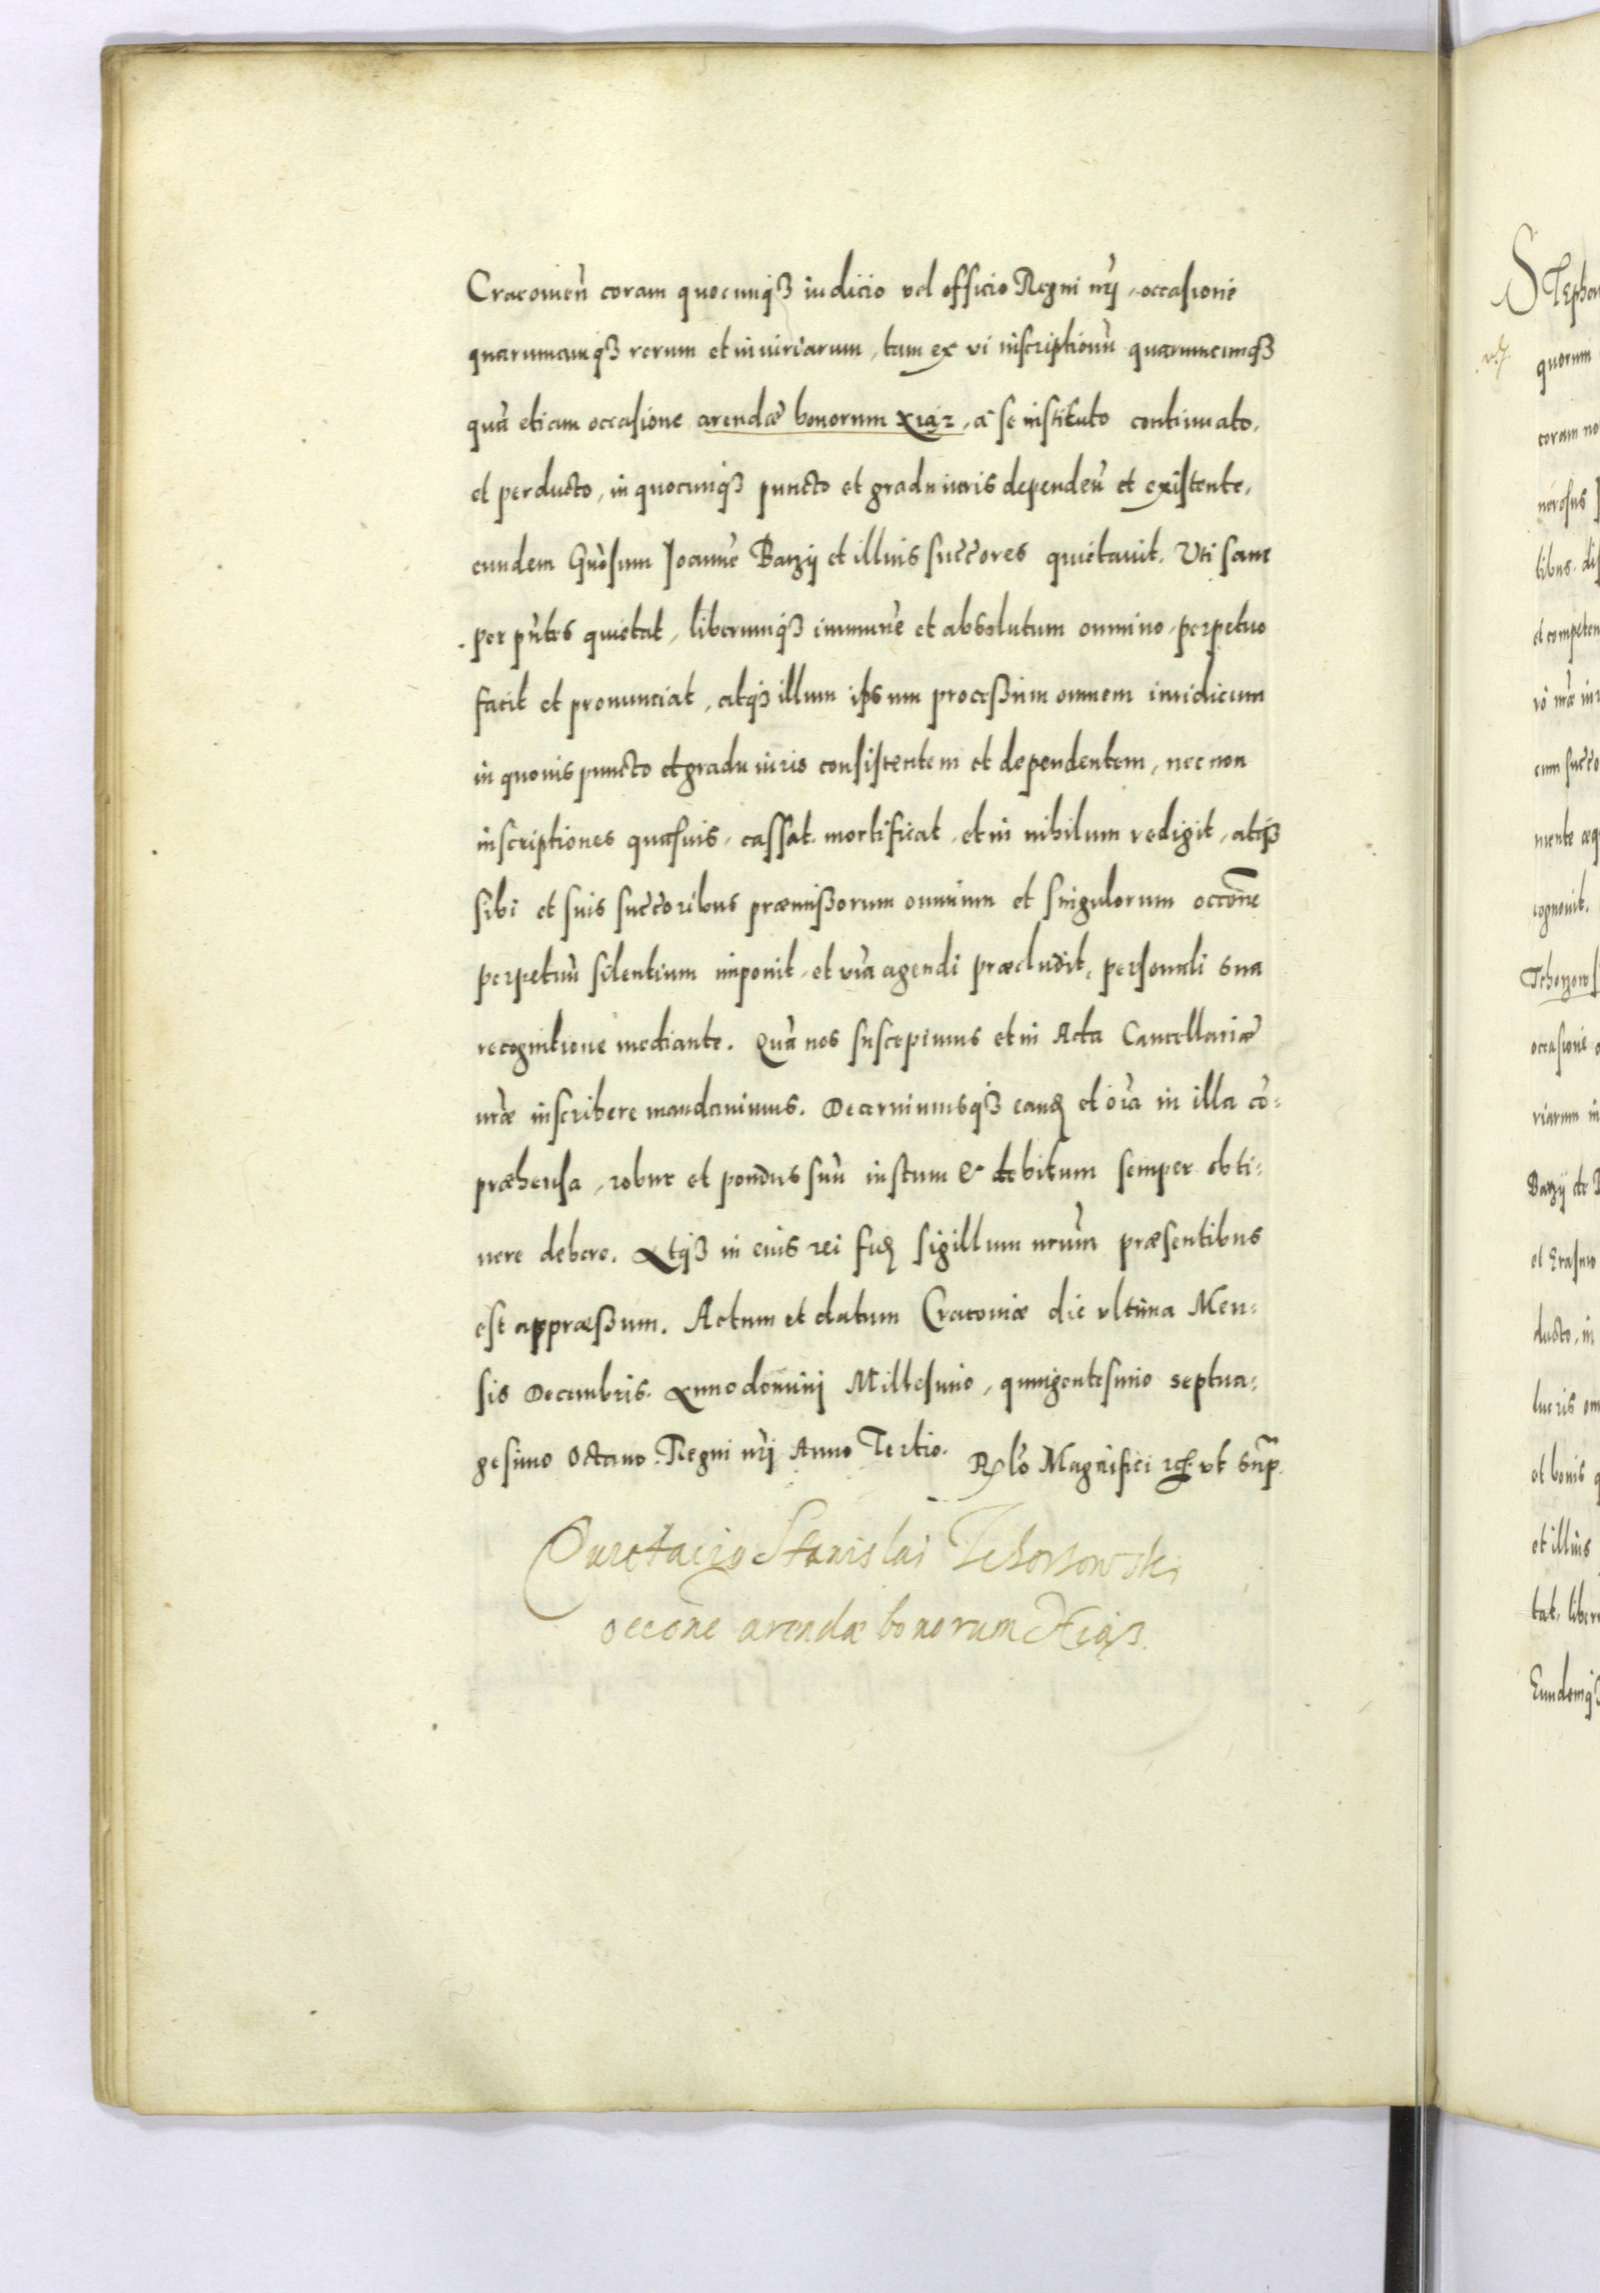 Cracovien̄ coram quocunqꝫ iudicio vel officio Regni nr̄i, occasione
quarumcunqꝫ rerum et iniuriarum, tam ex vi inscriptionū quarumcunqꝫ
quā etiam occasione arendæ bonorum Xiąz, a se instituto continuato,
et perducto, in quocunqꝫ puncto et gradu iuris dependen̄ et existente,
eundem Gn̄osum Joannē Barzÿ et illius succ̄ores quietauit. Uti sane
per pn̄tes quietat, liberumqꝫ immunē et absolutum omnino, perpetuo
facit et pronunciat, atqꝫ illum ipsum processum omnem iuridicum
in quouis puncto et gradu iuris consistentem et dependentem, nec non
inscriptiones quasuis, cassat mortificat, et in nihilum redigit, atqꝫ
sibi et suis succ̄oribus præmissorum omnium et singulorum occōne
perpetuū silentium imponit, et viā agendi præcludit, personali sua
recognitione mediante. Quā nos suscepimus et in Acta Cancellariæ
nr̄æ inscribere mandauimus. Decernimusqꝫ eand et oīa in illa cō=
præhensa, robur et pondus suū iustum & debitum semper obti=
nere debere. Atqꝫ in eius rei fid sigillum nrūm præsentibus
est appræssum. Actum et datum Cracouiæ die vltima Men=
sis Decembris. Anno domini Millesimo, quingentesimo septua=
gesimo Octauo. Regni nr̄i Anno Tertio. Rlō Magnifici etc. vt Sup̄.
Quietacio Stanislai Tchorzowski
occōne arendæ bonorum Xiąz.
Steph
quorum
coram no
nerosus J
tibus. dis
et competen
mente æq
cognouit.
Tchorzows
occasione
riarum in
Barzÿ de
et Erasmo
ducto, in
lucris om
et bonis q
et illius
tat, liber
Eundemqꝫ